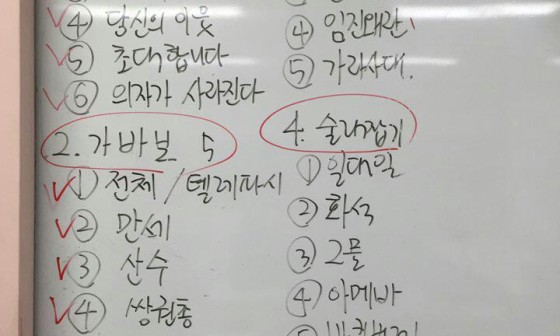 ④ 당신의 이웃
⑤ 초대합니다
⑥ 의자가 사라진다
2. 가바보 5
① 전체/텔레파시
② 만세
③ 산수
④ 쌍권총
④ 임진왜란
⑤ 가라사대.
4. 술래잡기
① 일대일
② 화석
③ 그물
④ 아메바